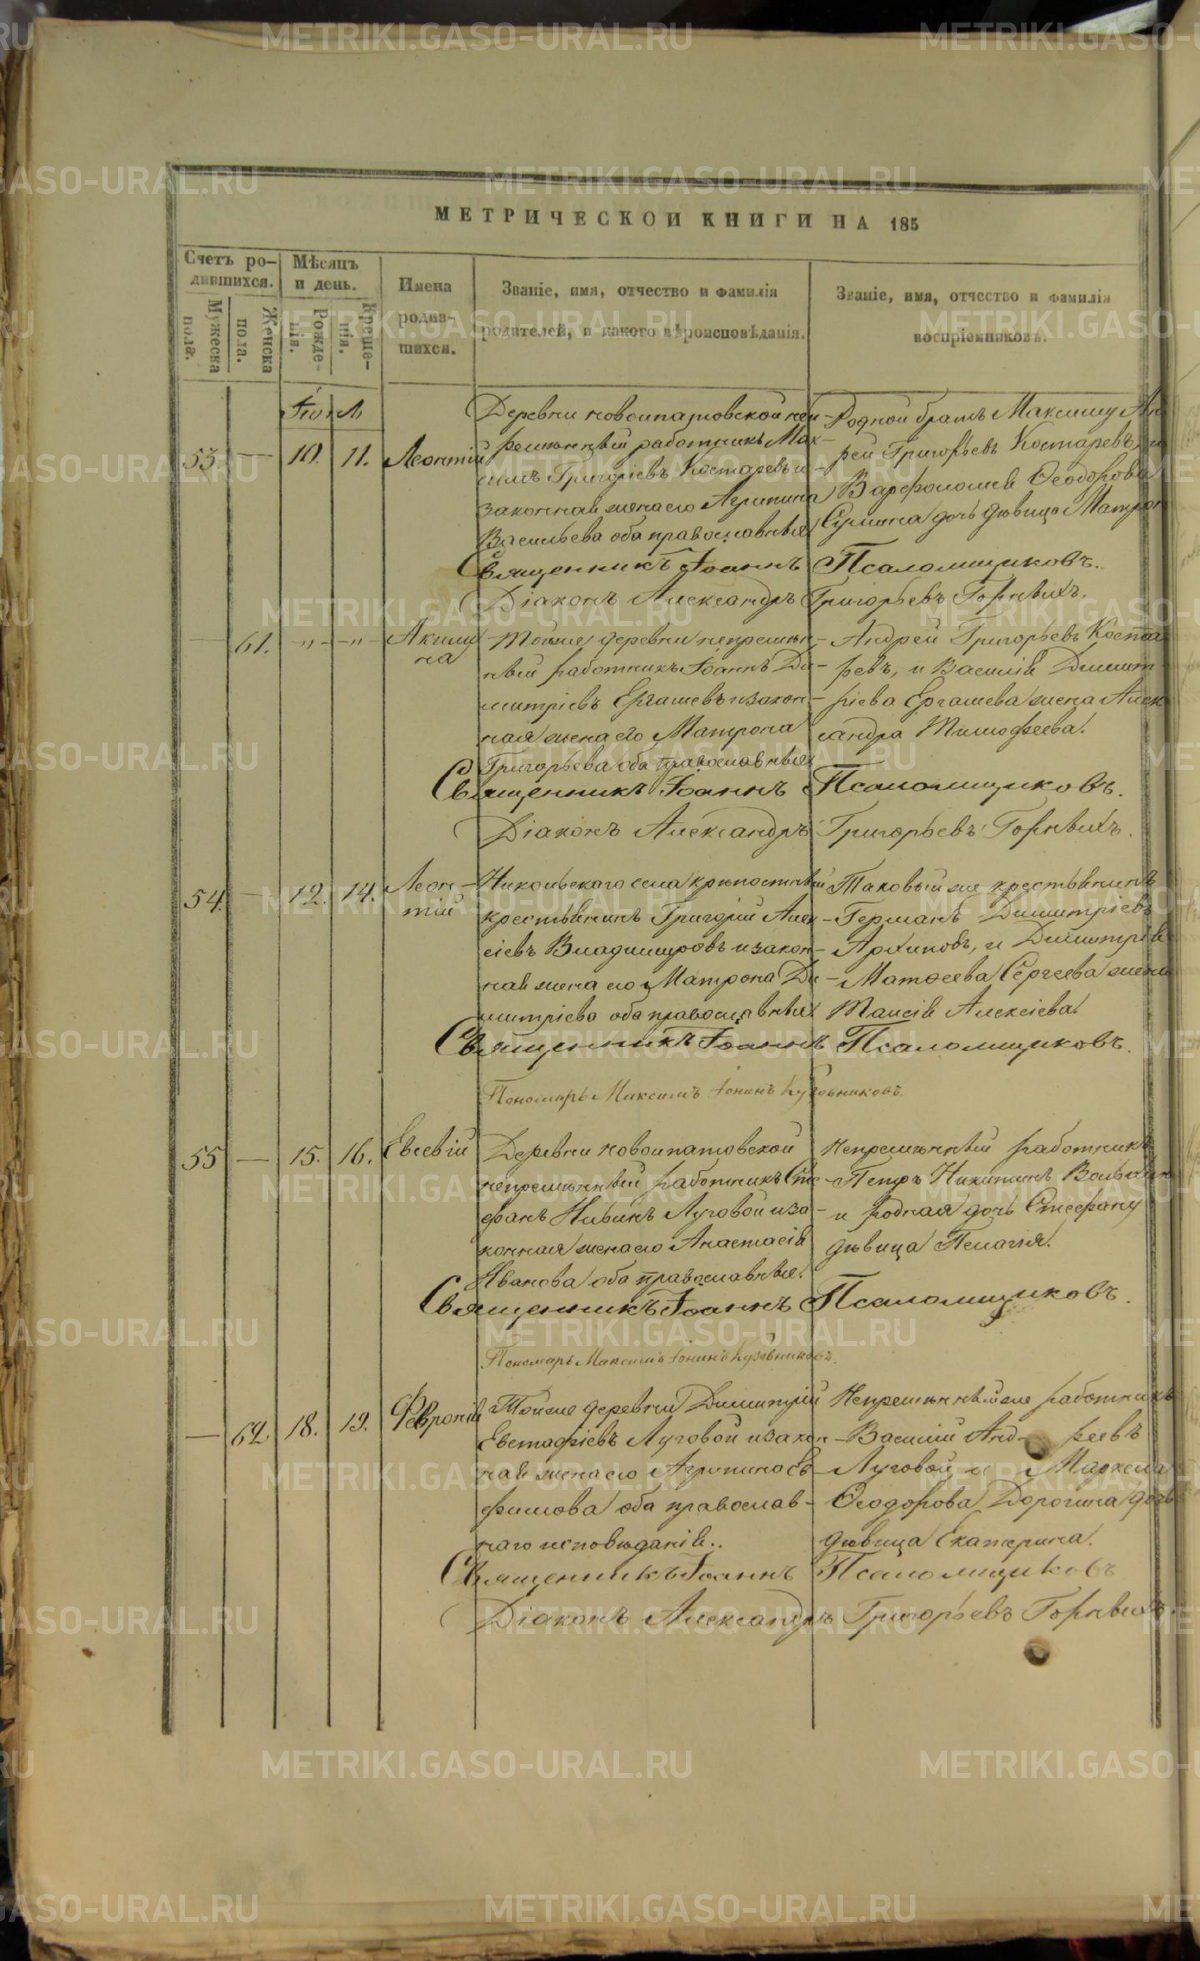 МЕТРИЧЕСКОЙ КНИГИ НА 185
Счетъ ро-
дившихся.
Мѣсяцъ
и день.
Имена
родив-
шихся.
Званіе, имя, отчество и фамилія
родителей, и какого вѣроисповѣданія.
Званіе, имя, отчество и фамилія
воспріемниковъ.
Мужеска
пола.
Женска
пола.
Рожде-
нія.
Креще-
нія.
Іюль
53. — 10. 11. Леонтій
Деревни новоипатовской неп-
ремѣнный работникъ Мак-
симъ Григорьевъ Костаревъ и
законная жена его Агрипина
Васильева оба православныя
Родной братъ Максиму Ан
рей Григорьевъ Костаревъ, и
Варфоломея Ѳеодорова
дочь дѣвица Матрон
Священникъ Іоаннъ Псаломщиковъ.
Діаконъ Александръ Григорьевъ Горныхъ.
— 61. -"- -"- Акили
на
Тойже деревни непремѣн-
ный работникъ Іоаннъ Ди-
митріевъ Ергашевъ и закон-
ная жена его Матрона
Григорьева оба православныя
Андрей Григорьевъ Коста
ревъ, и Василія Димит-
ріева Ергашева жена Алек
сандра Тимофеева.
Священникъ Іоаннъ Псаломщиковъ.
Діаконъ Александръ Григорьевъ Горныхъ.
54. — 12. 14. Леон-
тій
Никольскаго села крѣпостный
крестьянинъ Григорій Алек-
сіевъ Владимировъ и закон-
ная жена его Матрона Ди-
митріева оба православныя
Таковый же крестьянинъ
Германъ Димитріевъ
Архиповъ, и Димитрія
Матѳеева Сергеева жена
Таисія Алексіева.
Священникъ Іоаннъ Псаломщиковъ.
Пономарь Максимъ Іонинъ Кузовниковъ.
55 — 15. 16. Евсевій
Деревни новоипатовской
непремѣнный работникъ Сте-
фанъ Луговой и за-
конная жена его Анастасія
Иванова оба православныя.
Непремѣнный работникъ
Петръ Никитинъ
и родная дочь Стефану
дѣвица Пелагія.
Священникъ Іоаннъ Псаломщиковъ.
Пономарь Максимъ Іонинъ Кузовниковъ.
— 62. 18. 19. Февронія
Тойже деревни Димитрій
Евстафіевъ Луговой и закон-
ная жена его Агрипина Ев-
фимова оба православ-
наго исповѣданія..
Непремѣнный же работникъ
Василій Анд- реевъ
Луговой и Маркела
Ѳеодорова Дорогина дочь
дѣвица Екатерина.
Священникъ Іоаннъ Псаломщиковъ
Діаконъ Александръ Григорьевъ Горныхъ.
METRIKI.GASO-URAL.RU